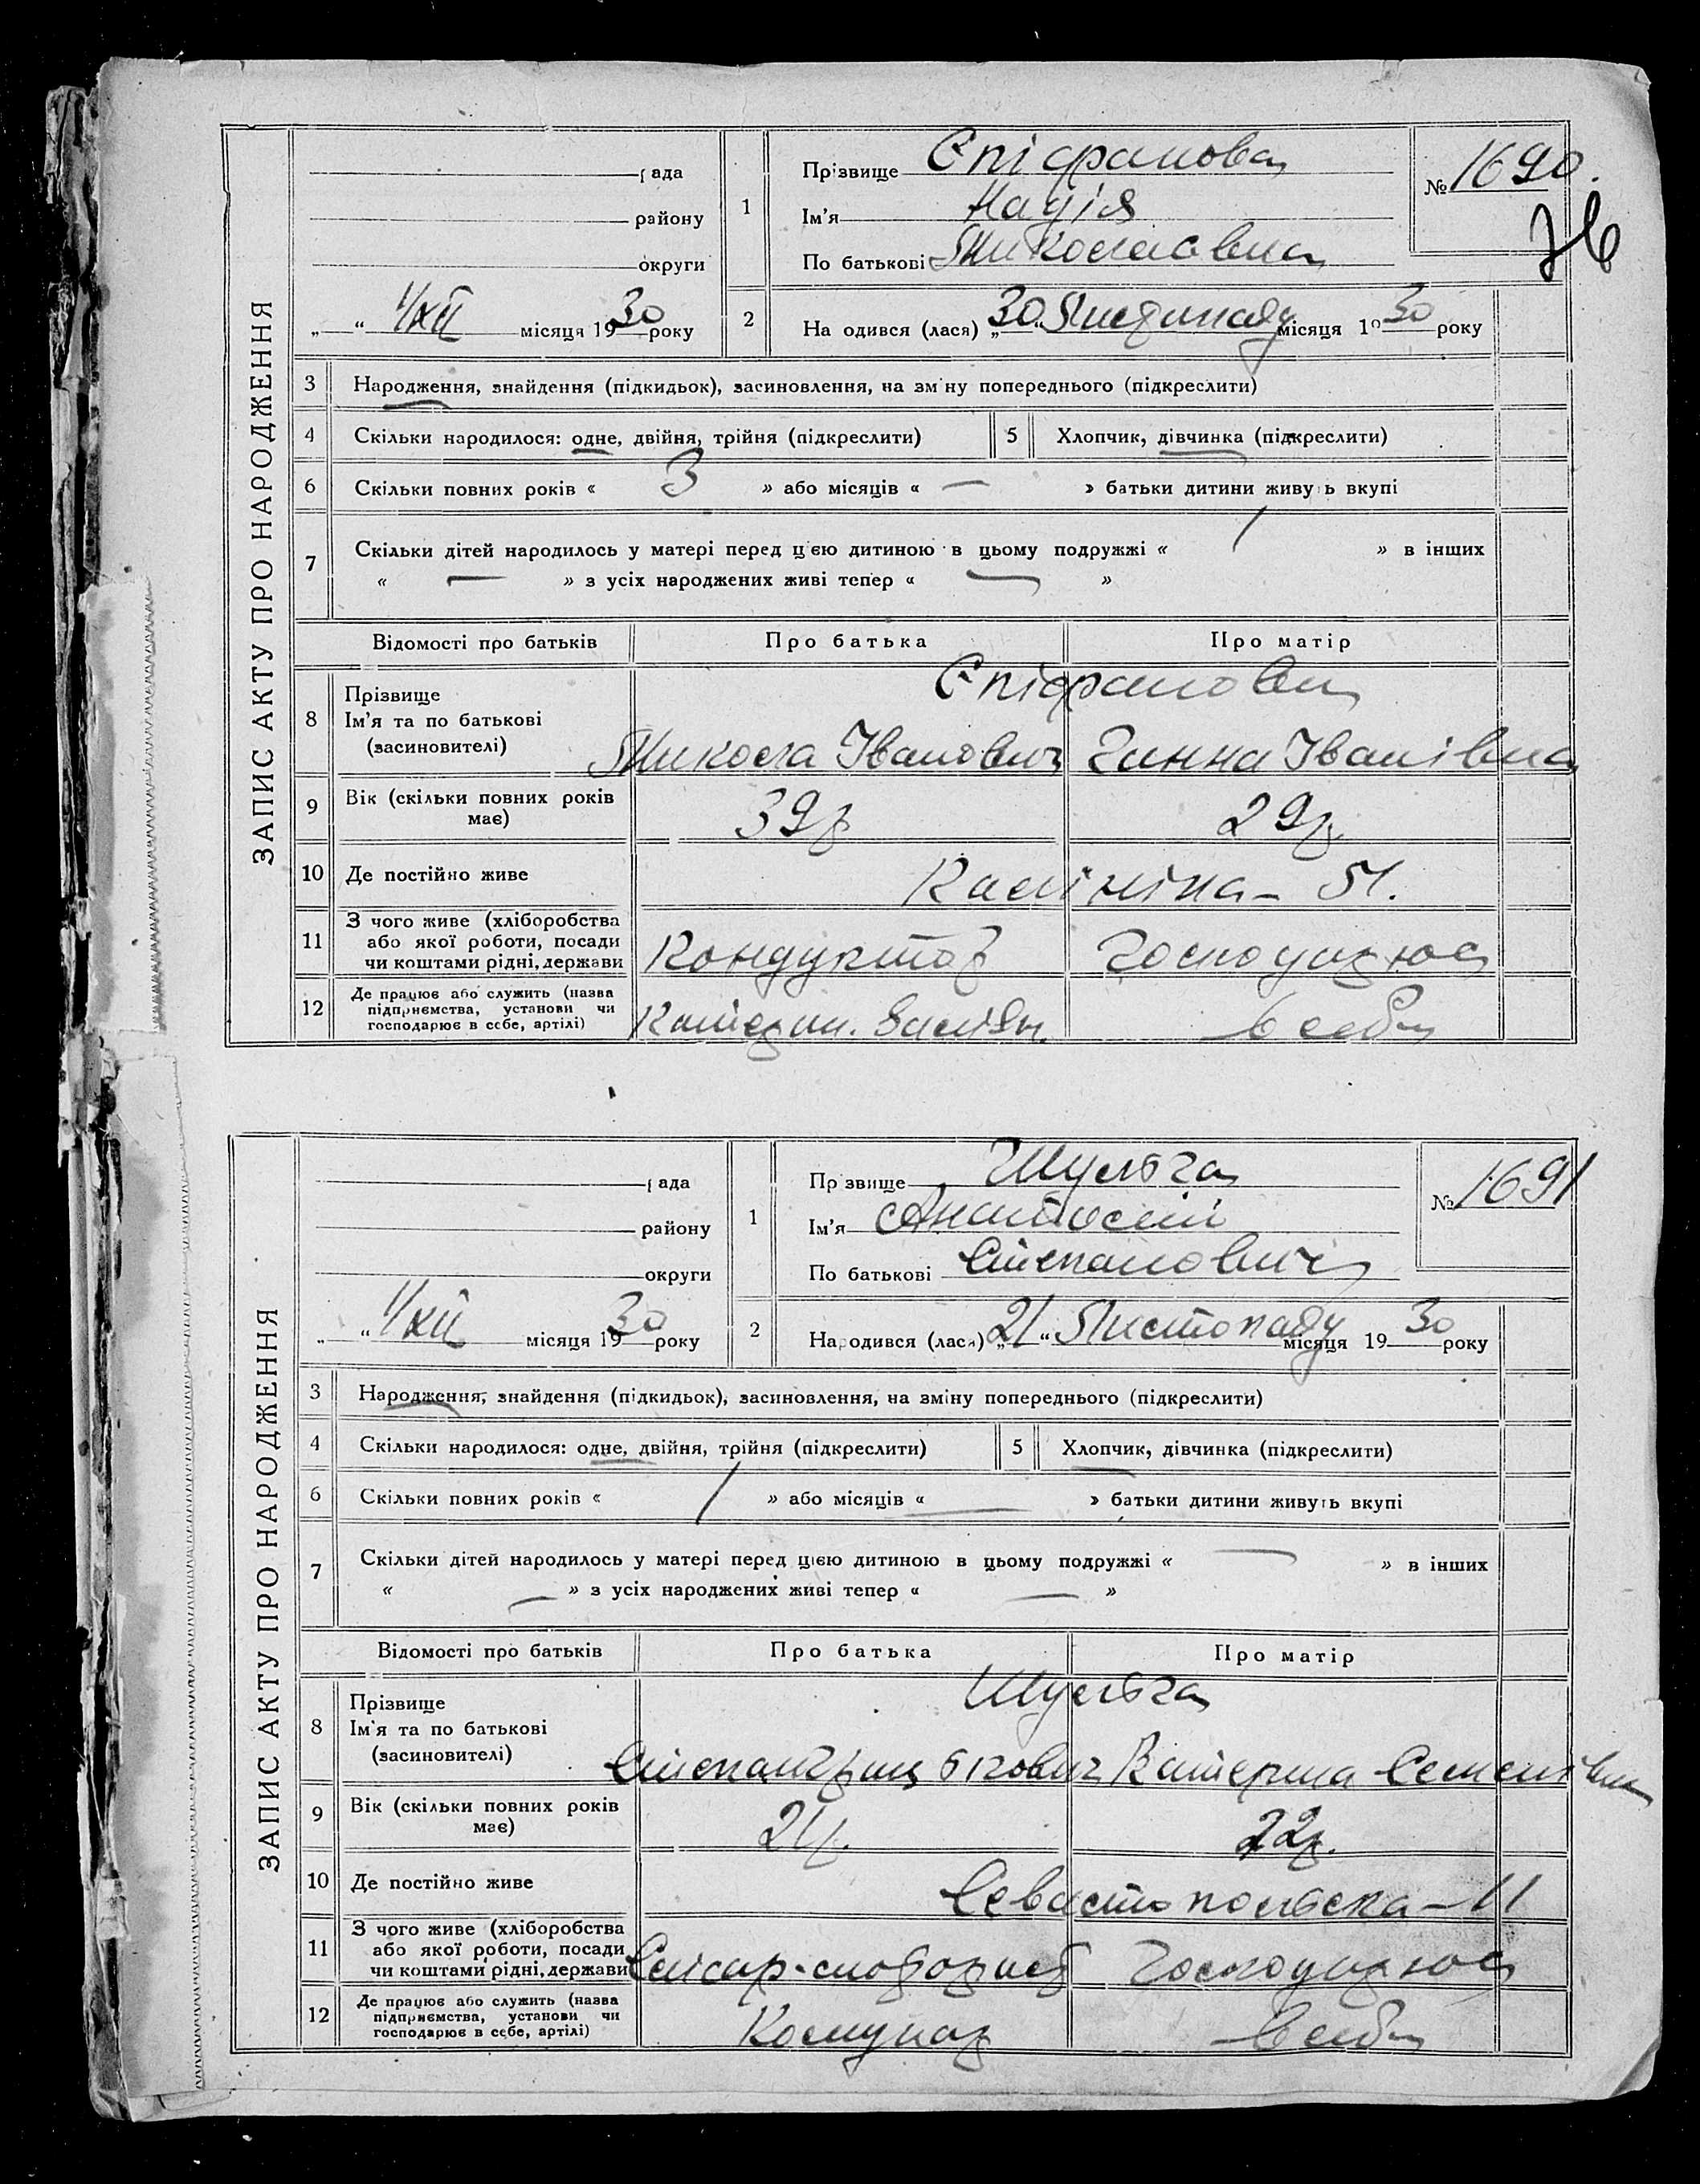 ЗАПИС АКТУ ПРО НАРОДЖЕННЯ
рада
району
округи
„ “ 4/XII місяця 1930 року
1 Прізвище Єпіфанова
Ім'я Надія
По батькові Миколаєвна
№ 1690.
2 Народився (лася) „30“ Листопаду місяця 1930 року
3 Народження, знайдення (підкидьок), засиновлення, на зміну попереднього (підкреслити)
4 Скільки народилося: одне, двійня, трійня (підкреслити) 5 Хлопчик, дівчинка (підкреслити)
6 Скільки повних років « 3 » або місяців « — » батьки дитини живуть вкупі
7 Скільки дітей народилось у матері перед цією дитиною в цьому подружжі « 1 » в інших
« — » з усіх народжених живі тепер « — »
Відомості про батьків Про батька Про матір
8 Прізвище
Ім'я та по батькові
(засиновителі)
Єпіфанови
Микола Іванович Ганна Іванівна
9 Вік (скільки повних років має) 39р 29р.
10 Де постійно живе Калініна – 51.
11 З чого живе (хліборобства
або якої роботи, посади
чи коштами рідні, держави
Кондуктор Господарює
12 Де працює або служить (назва
підприємства, установи чи
господарює в себе, артілі)
Катерин. Залізн. в себе
ЗАПИС АКТУ ПРО НАРОДЖЕННЯ
рада
району
округи
„ “ 4/XII місяця 1930 року
1 Прізвище Шульга
Ім'я Анатолій
По батькові Степанович
№ 1691
2 Народився (лася) „21“ Листопаду місяця 1930 року
3 Народження, знайдення (підкидьок), засиновлення, на зміну попереднього (підкреслити)
4 Скільки народилося: одне, двійня, трійня (підкреслити) 5 Хлопчик, дівчинка (підкреслити)
6 Скільки повних років « 1 » або місяців « — » батьки дитини живуть вкупі
7 Скільки дітей народилось у матері перед цією дитиною в цьому подружжі « — » в інших
« — » з усіх народжених живі тепер « — »
Відомості про батьків Про батька Про матір
8 Прізвище
Ім'я та по батькові
(засиновителі)
Шульга
Степан Катерина Семенівна
9 Вік (скільки повних років має) 21р. 22р.
10 Де постійно живе Севастопольска – 11
11 З чого живе (хліборобства
або якої роботи, посади
чи коштами рідні, держави
Слісар Господарює
12 Де працює або служить (назва
підприємства, установи чи
господарює в себе, артілі)
Комунар в себе